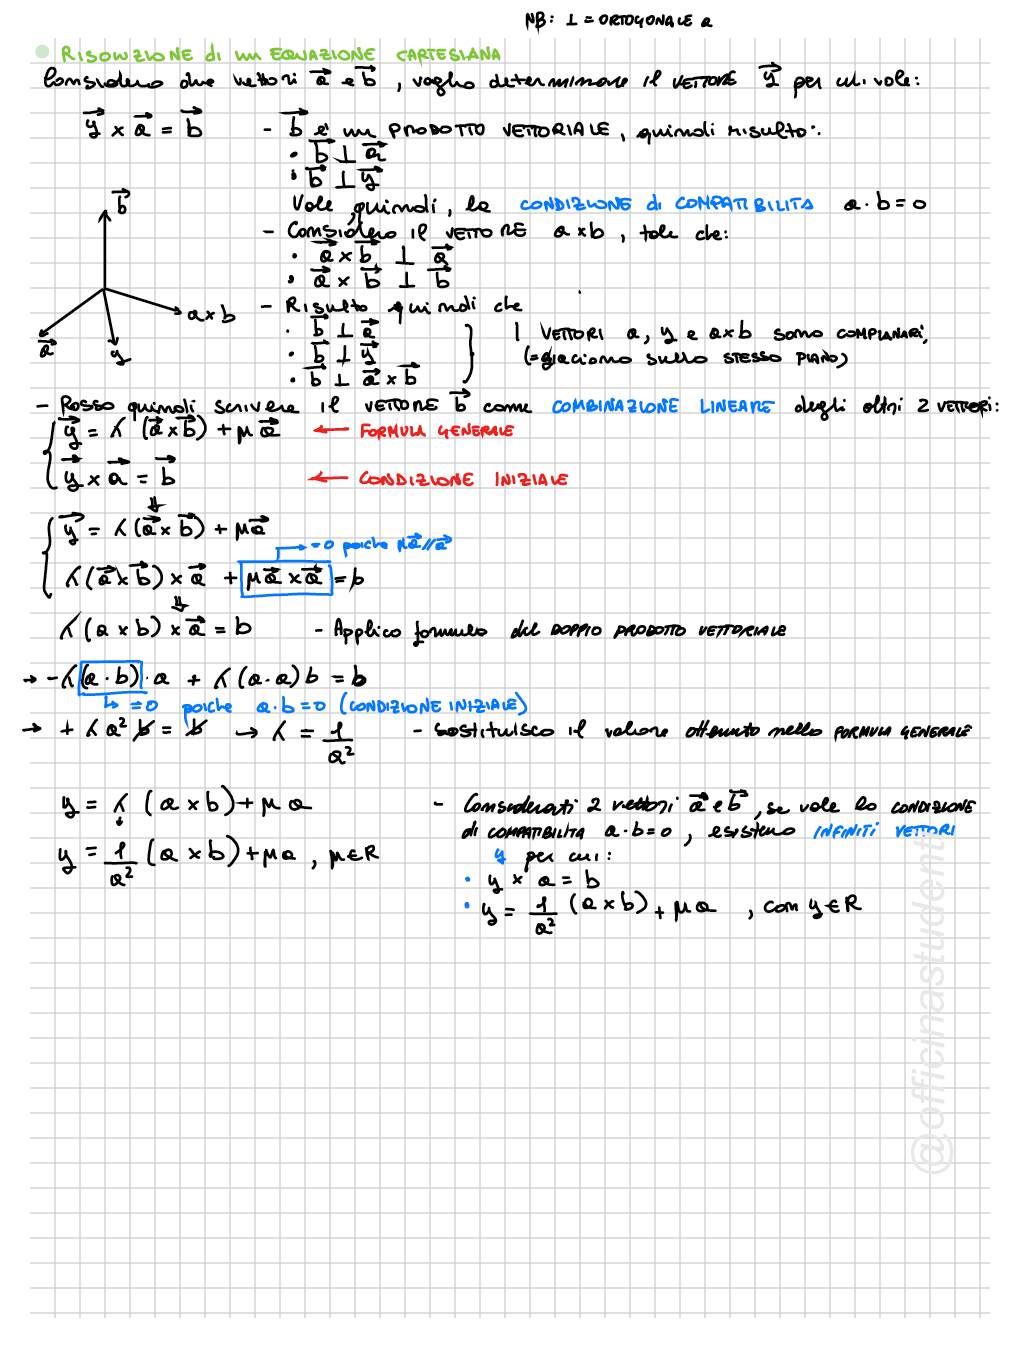 NB: ⊥ = ORTOGONALE a
RISOLUZIONE di un EQUAZIONE CARTESIANA
Considero due vettori a⃗ e b⃗ , voglio determinare il VETTORE y⃗ per cui vale:
y⃗ × a⃗ = b⃗ - b⃗ e' un PRODOTTO VETTORIALE, quindi risulta:
• b⃗ ⊥ a⃗
• b⃗ ⊥ y⃗
Vale quindi, la CONDIZIONE di COMPATIBILITA a·b=0
- Considero il VETTORE a×b, tale che:
• a⃗ × b⃗ ⊥ a⃗
• a⃗ × b⃗ ⊥ b⃗
- Risulta quindi che
• b⃗ ⊥ a⃗
• b⃗ ⊥ y⃗
• b⃗ ⊥ a⃗ × b⃗
I VETTORI a, y e a×b sono COMPLANARI,
(=giaciono sullo STESSO PIANO)
b⃗
a×b
a⃗
y
- Posso quindi scrivere il VETTORE b⃗ come COMBINAZIONE LINEARE degli altri 2 VETTORI:
y⃗ = λ (a⃗×b⃗) + μa⃗ ← FORMULA GENERALE
y⃗ × a⃗ = b⃗ ← CONDIZIONE INIZIALE
⇓
y⃗ = λ(a⃗×b⃗) + μa⃗
→ =0 poichè μa⃗//a⃗
λ(a⃗×b⃗) × a⃗ + μa⃗ × a⃗ = b
⇓
λ(a×b) × a⃗ = b - Applico formula del DOPPIO PRODOTTO VETTORIALE
→ -λ(a·b)·a + λ(a·a)b = b
↳ =0 poichè a·b=0 (CONDIZIONE INIZIALE)
→ + λa² b = b → λ = 1/a² - Sostituisco il valore ottenuto nella FORMULA GENERALE
y = λ (a×b) + μa
y = 1/a² (a×b) + μa , μ∈R
- Considerati 2 vettori a⃗ e b⃗, se vale la CONDIZIONE
di COMPATIBILITA a·b=0, esistono INFINITI VETTORI
y per cui:
• y × a = b
• y = 1/a² (a×b) + μa , con y∈R
@officinastudenti